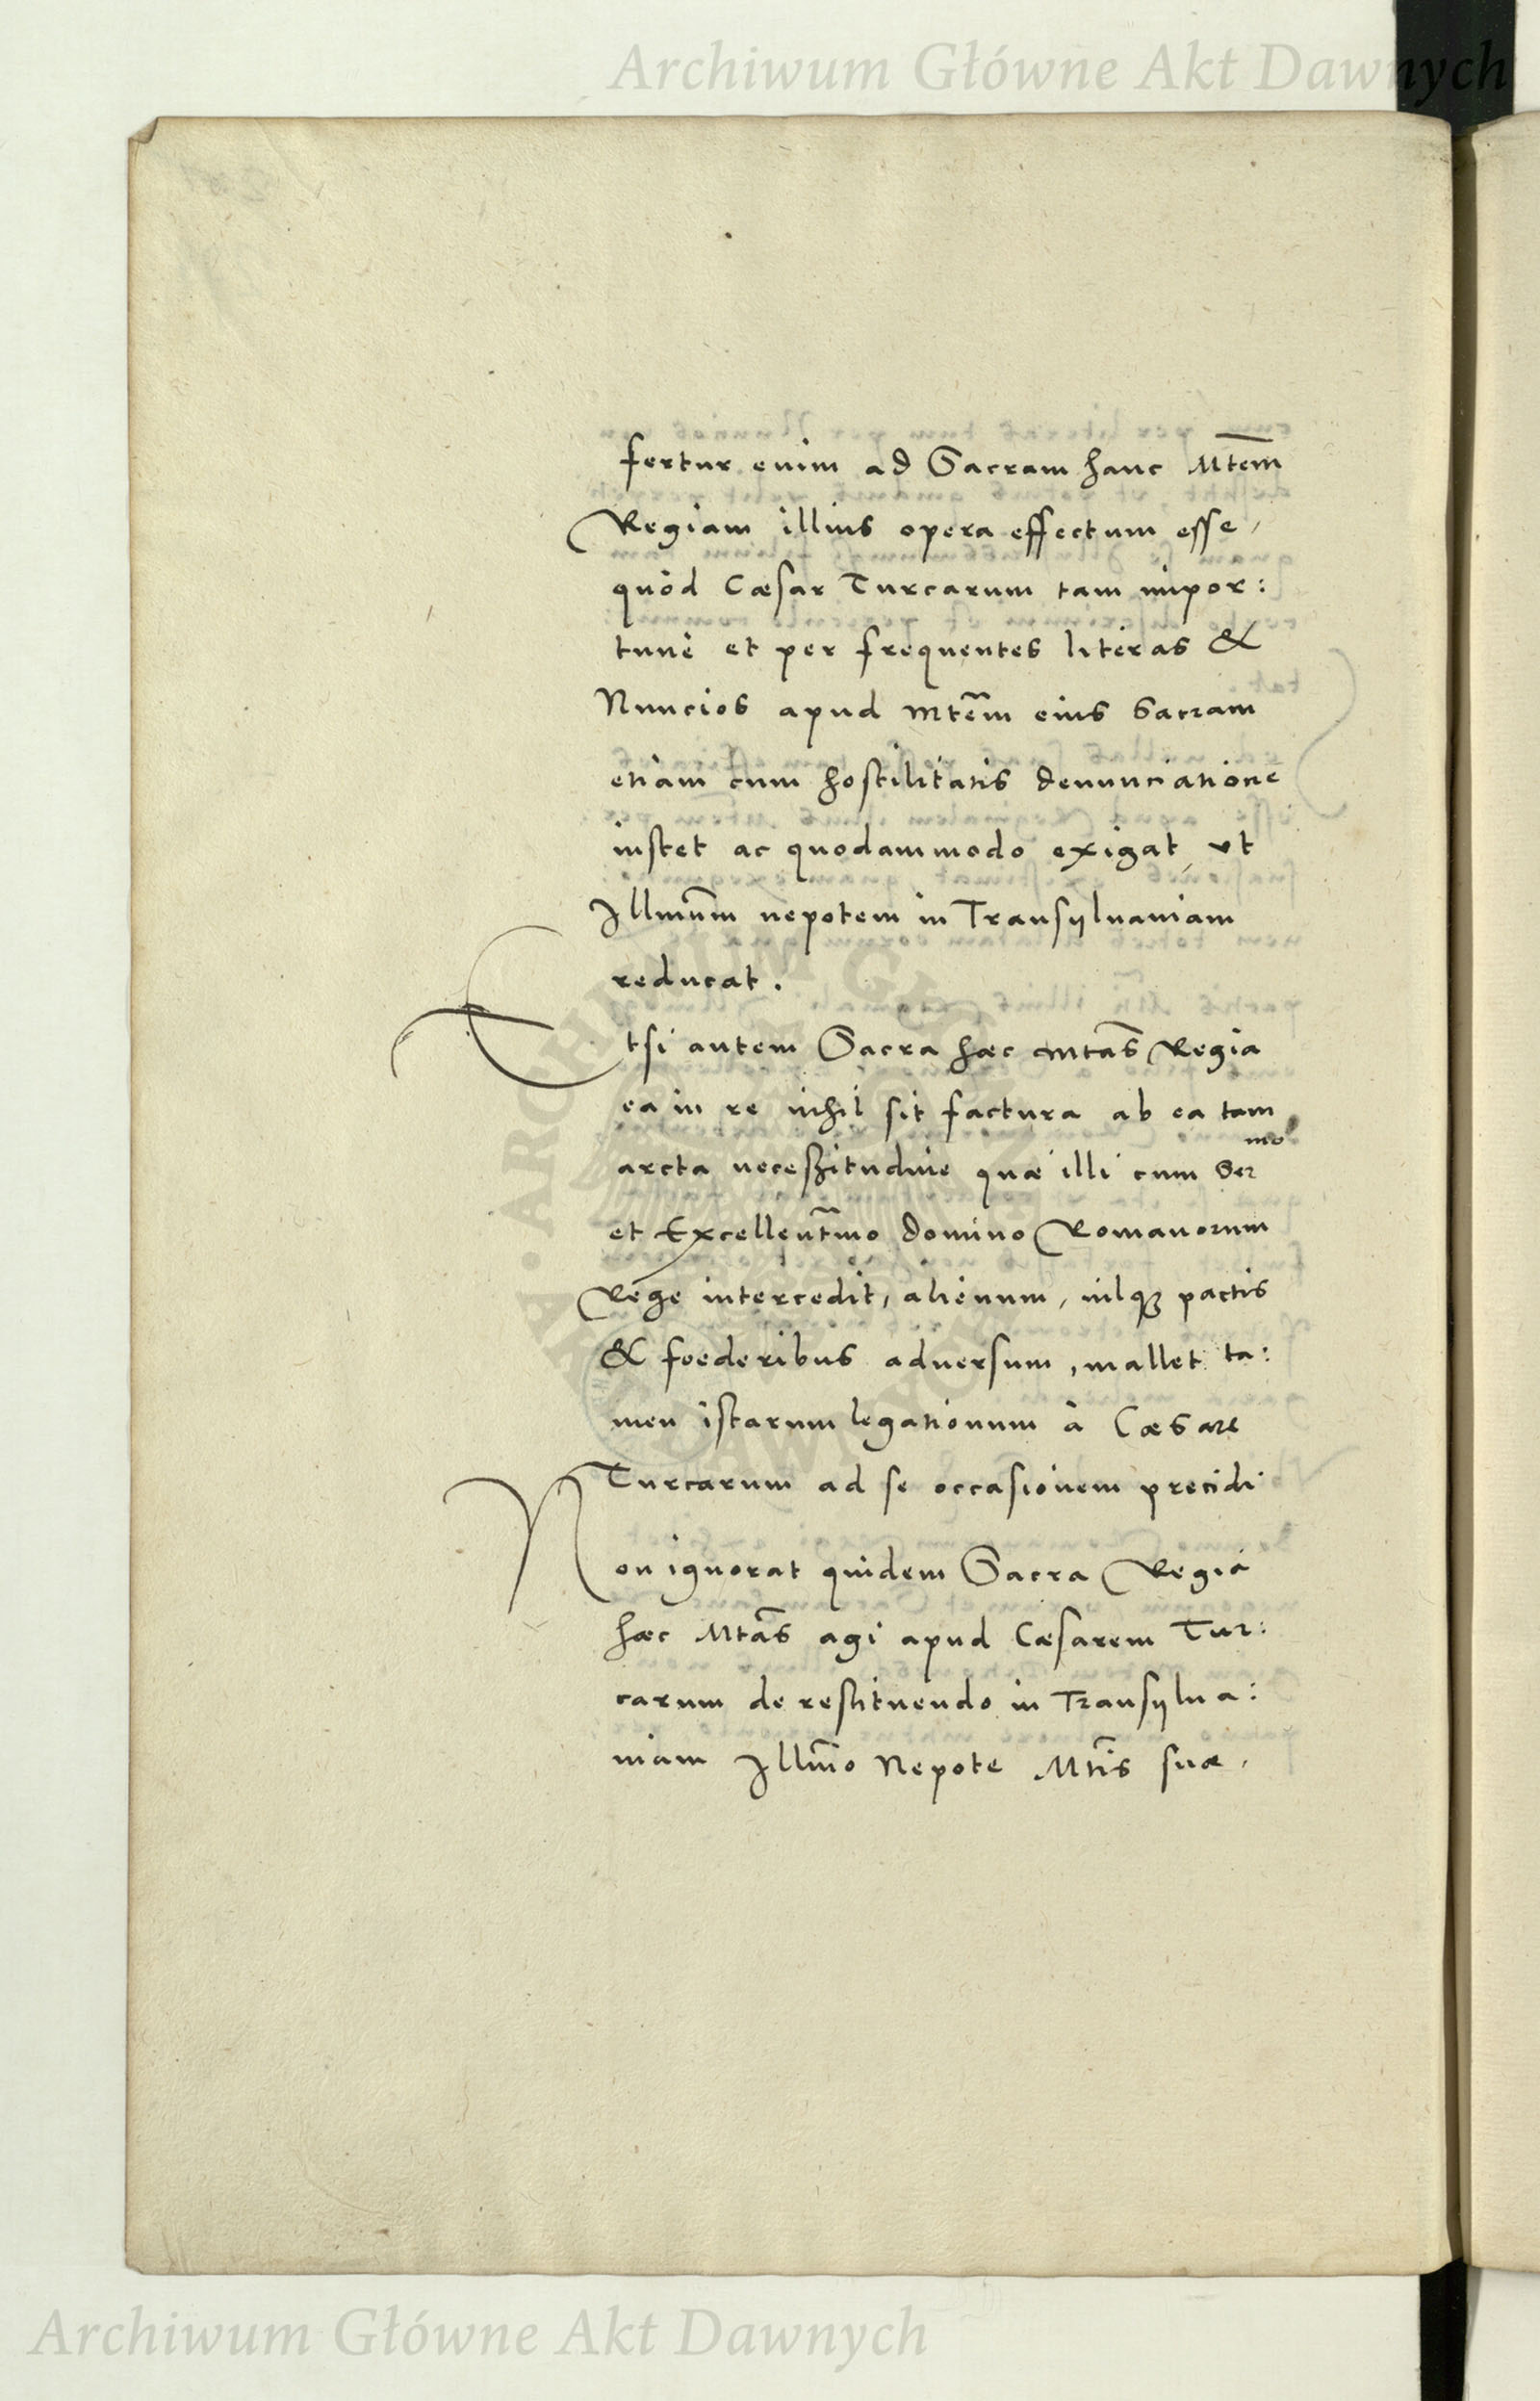 Archiwum Główne Akt Dawnych
fertur enim ad Sacram hanc Mtem
Regiam illius opera effectum esse,
quòd Cæsar Turcarum tam impor:
tunè et per frequentes literas &
Nuncios apud Mtem eius Sacram
etiam cum hostilitatis denunciatione
instet ac quodammodo exigat, vt
Illmum nepotem in Transyluaniam
reducat.
Etsi autem Sacra hæc Mtas Regia
ea in re nihil sit factura ab ea tam
arcta necessitudine quæ illi cum Sermo
et Excellentmo domino Romanorum
Rege intercedit, alienum, nilque pactis
& foederibus aduersum, mallet ta:
men istarum legationum à Cæsare
Turcarum ad se occasionem precidi
Non ignorat quidem Sacra Regia
hæc Mtas agi apud Cæsarem Tur:
carum de restituendo in Transylua:
niam Illmo Nepote Mtis suæ,
Archiwum Główne Akt Dawnych